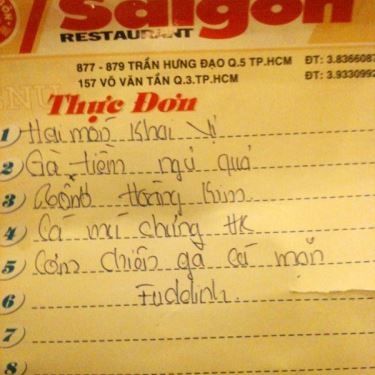 Saigon
RESTAURANT
877 - 879 TRẦN HƯNG ĐẠO Q.5 TP.HCM ĐT: 3.8366087
157 VÕ VĂN TẦN Q.3.TP.HCM ĐT: 3.9330992
Thực Đơn
1 Hai món Khai Vị
2 Gà tiềm ngũ quả
3 Hoàng Kim
4 Cá mú chưng HK
5 Cơm chiên gà cá mặn
6 Fuddinh
7
8